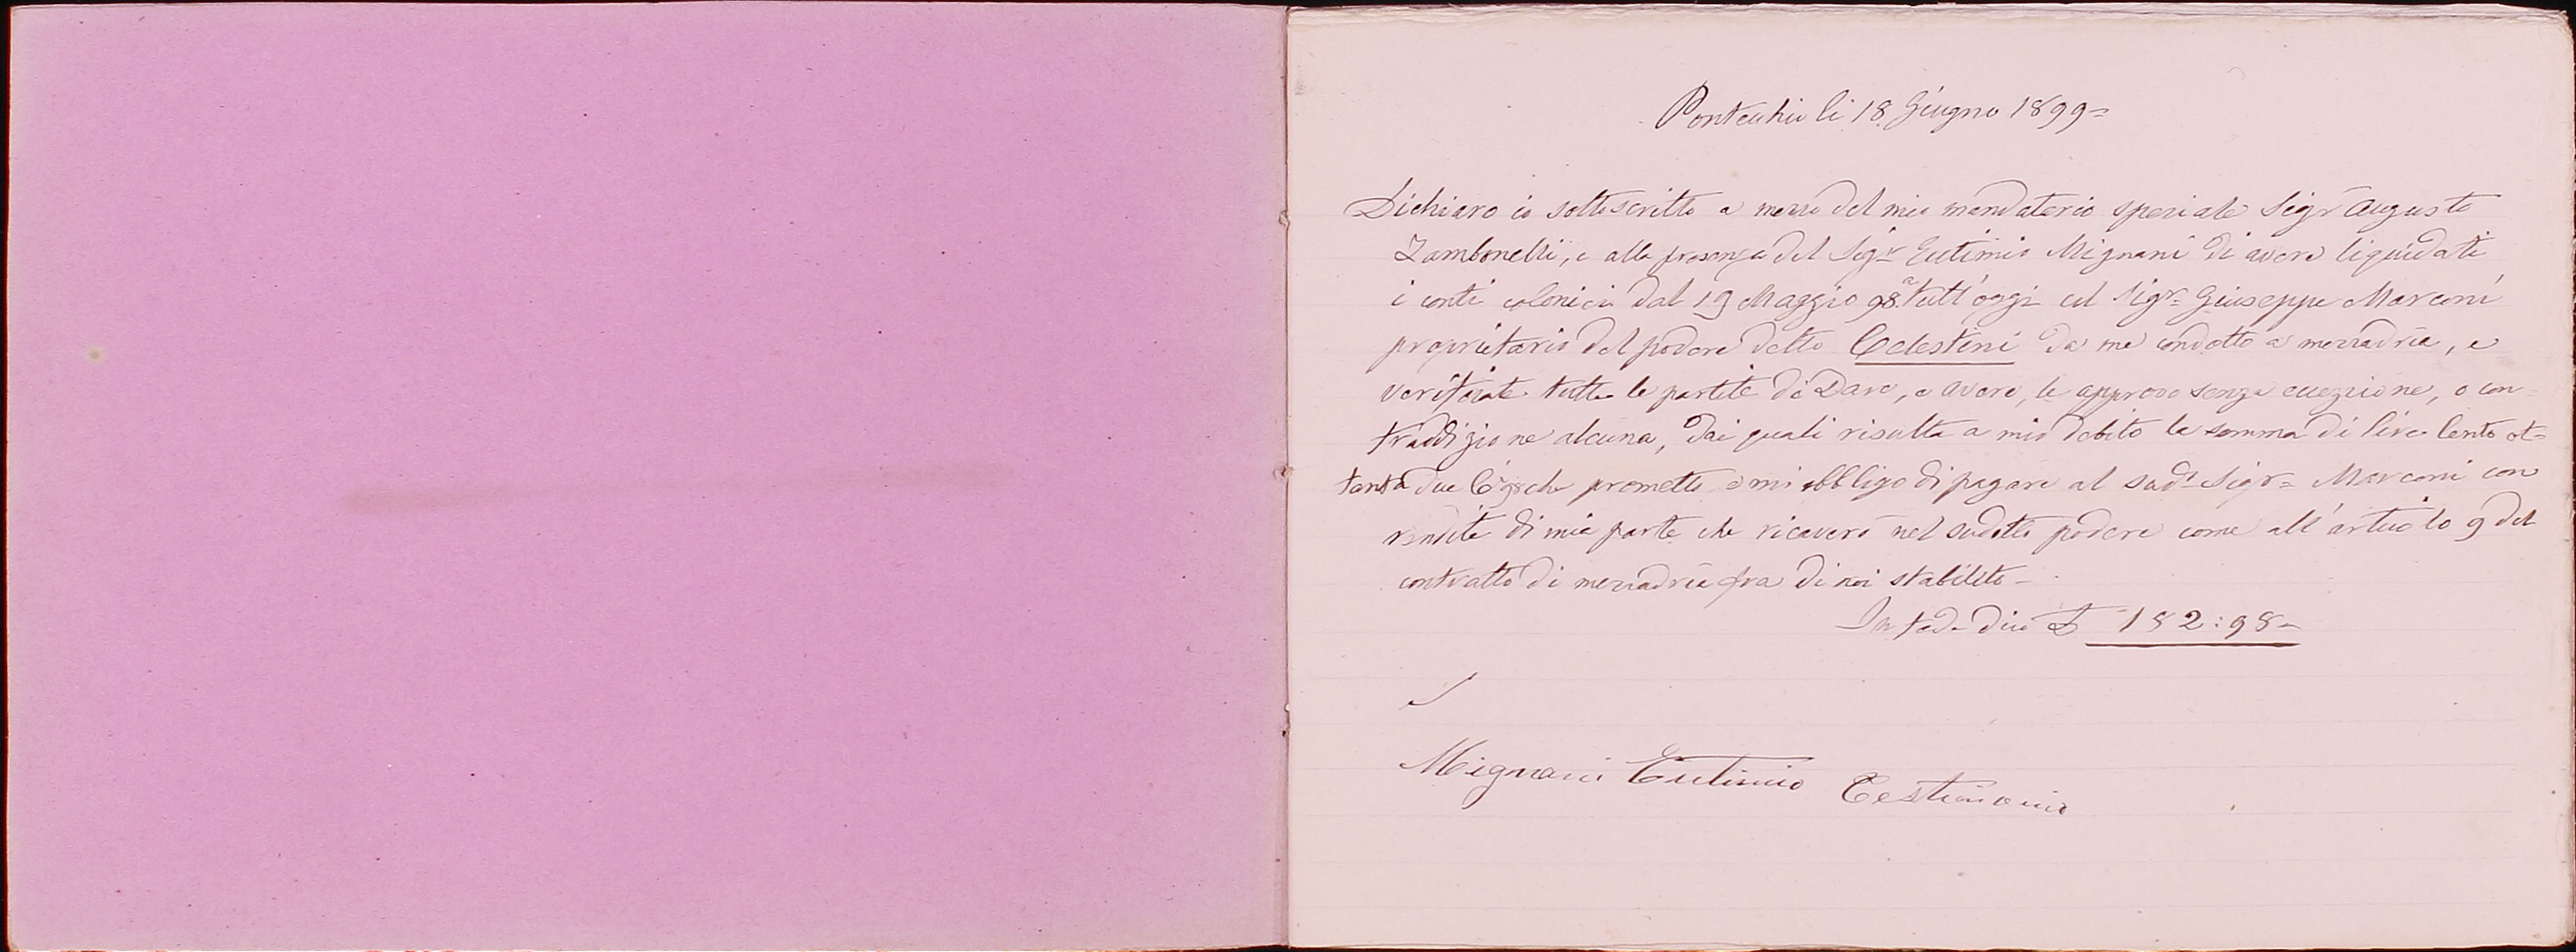 Pontecchio li 18 Giugno 1899=
Dichiaro io sottoscritto a mezzo del mio mandatario speziale Sigr Augusto
Zambonelli, e alla presenza del Sigr Eutimio Mignani di avere liquidati
i conti colonici dal 19 Maggio 98 a tutt'oggi col Sigr= Giuseppe Marconi
proprietario del podere detto Celestini da me condotto a mezzadria, e
verificate tutte le partite di Dare, e avere, le approvo senza eccezione, o con=
traddizione alcuna, dai quali risulta a mio debito la somma di lire Cento ot=
tanta due C 98 che prometto e mi obbligo di pagare al sudt Sigr= Marconi con
rendite di mia parte che ricaverò nel sudetto podere come all'articolo 9 del
contratto di mezzadria fra di noi stabilito-
In fede dico £ 182:98-
Mignani Eutimio Testimonio